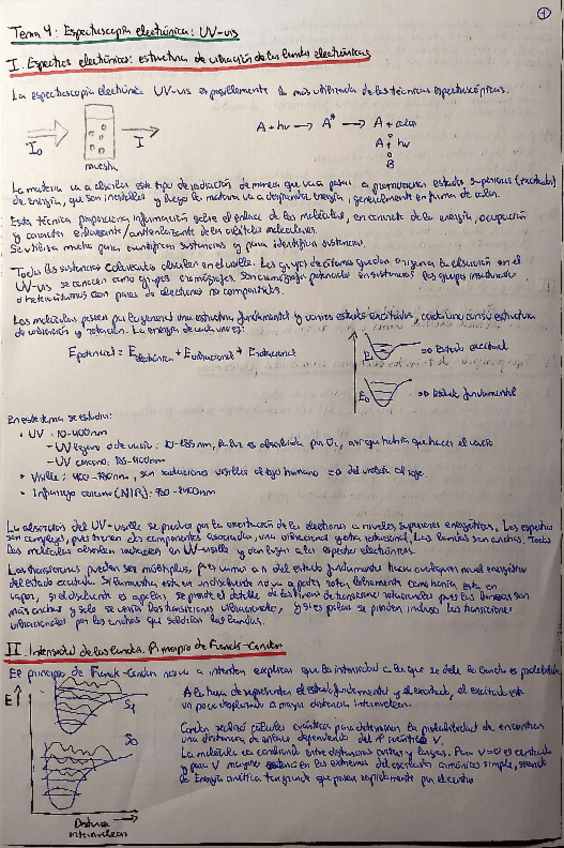 1
Tema 4: Espectroscopía electrónica: UV-vis
I. Espectros electrónicos: estructura de vibración de las bandas electrónicas
La espectroscopía electrónica UV-vis es posiblemente la más utilizada de las técnicas espectroscópicas.
I₀ muestra I
A + hν → A* → A + calor
A + hν
B
La materia va a absorber este tipo de radiación de manera que va a pasar a promocionar estados superiores (excitados)
de energía, que son inestables y luego la materia va a desprender energía, generalmente en forma de calor.
Esta técnica proporciona información sobre el enlace de las moléculas, en concreto de la energía, ocupación
y carácter enlazante/antienlazante de los orbitales moleculares.
Se utiliza mucho para cuantificar sustancias y para identificar sustancias.
Todas las sustancias coloreadas absorben en el visible. Los grupos de átomos que dan origen a la absorción en el
UV-vis se conocen como grupos cromóforos. Son cromóforos potenciales en sustancias los grupos insaturados
o heteroátomos con pares de electrones no compartidos.
Las moléculas poseen por lo general una estructura fundamental y varios estados excitados, cada uno con su estructura
de vibración y rotación. La energía de cada uno es:
E potencial = E electrónica + E vibracional + E rotacional
E₁ => Estado excitado
E₀ => Estado fundamental
En este tema se estudia:
• UV: 10-400nm
- UV lejano o de vacío: 10-185nm, la luz es absorbida por O₂, así que habría que hacer el vacío
- UV cercano: 185-400nm
• Visible: 400-780nm, son radiaciones visibles al ojo humano => del violeta al rojo.
• Infrarrojo cercano (NIR): 780-2400nm
La absorción del UV-visible se produce por la excitación de los electrones a niveles superiores energéticos. Los espectros
son complejos, pues tienen dos componentes asociadas, una vibracional y otra rotacional. Las bandas son anchas. Todas
las moléculas absorben radiación en UV-visible y dan lugar a los espectros electrónicos.
Las transiciones pueden ser múltiples, pues vamos a ir del estado fundamental hacia cualquier nivel energético
del estado excitado. Si la muestra está en un disolvente no va a poder rotar libremente como haría si está en
vapor, si el disolvente es apolar se pierde el detalle de las líneas de transiciones rotacionales pues las líneas son
más anchas y solo se vería las transiciones vibracionales, y si es polar se pierden incluso las transiciones
vibracionales por lo anchas que saldrían las bandas.
II. Intensidad de las bandas. Principio de Franck-Condon
El principio de Franck-Condon nos va a intentar explicar que la intensidad a la que se debe la banda es probabilidad
E S₁ S₀
Distancia
internuclear
A la hora de representar el estado fundamental y el excitado, el excitado está
un poco desplazado a mayor distancia internuclear.
Condon realizó cálculos cuánticos para determinar la probabilidad de encontrar
una distancia de enlace dependiendo del nº cuántico V.